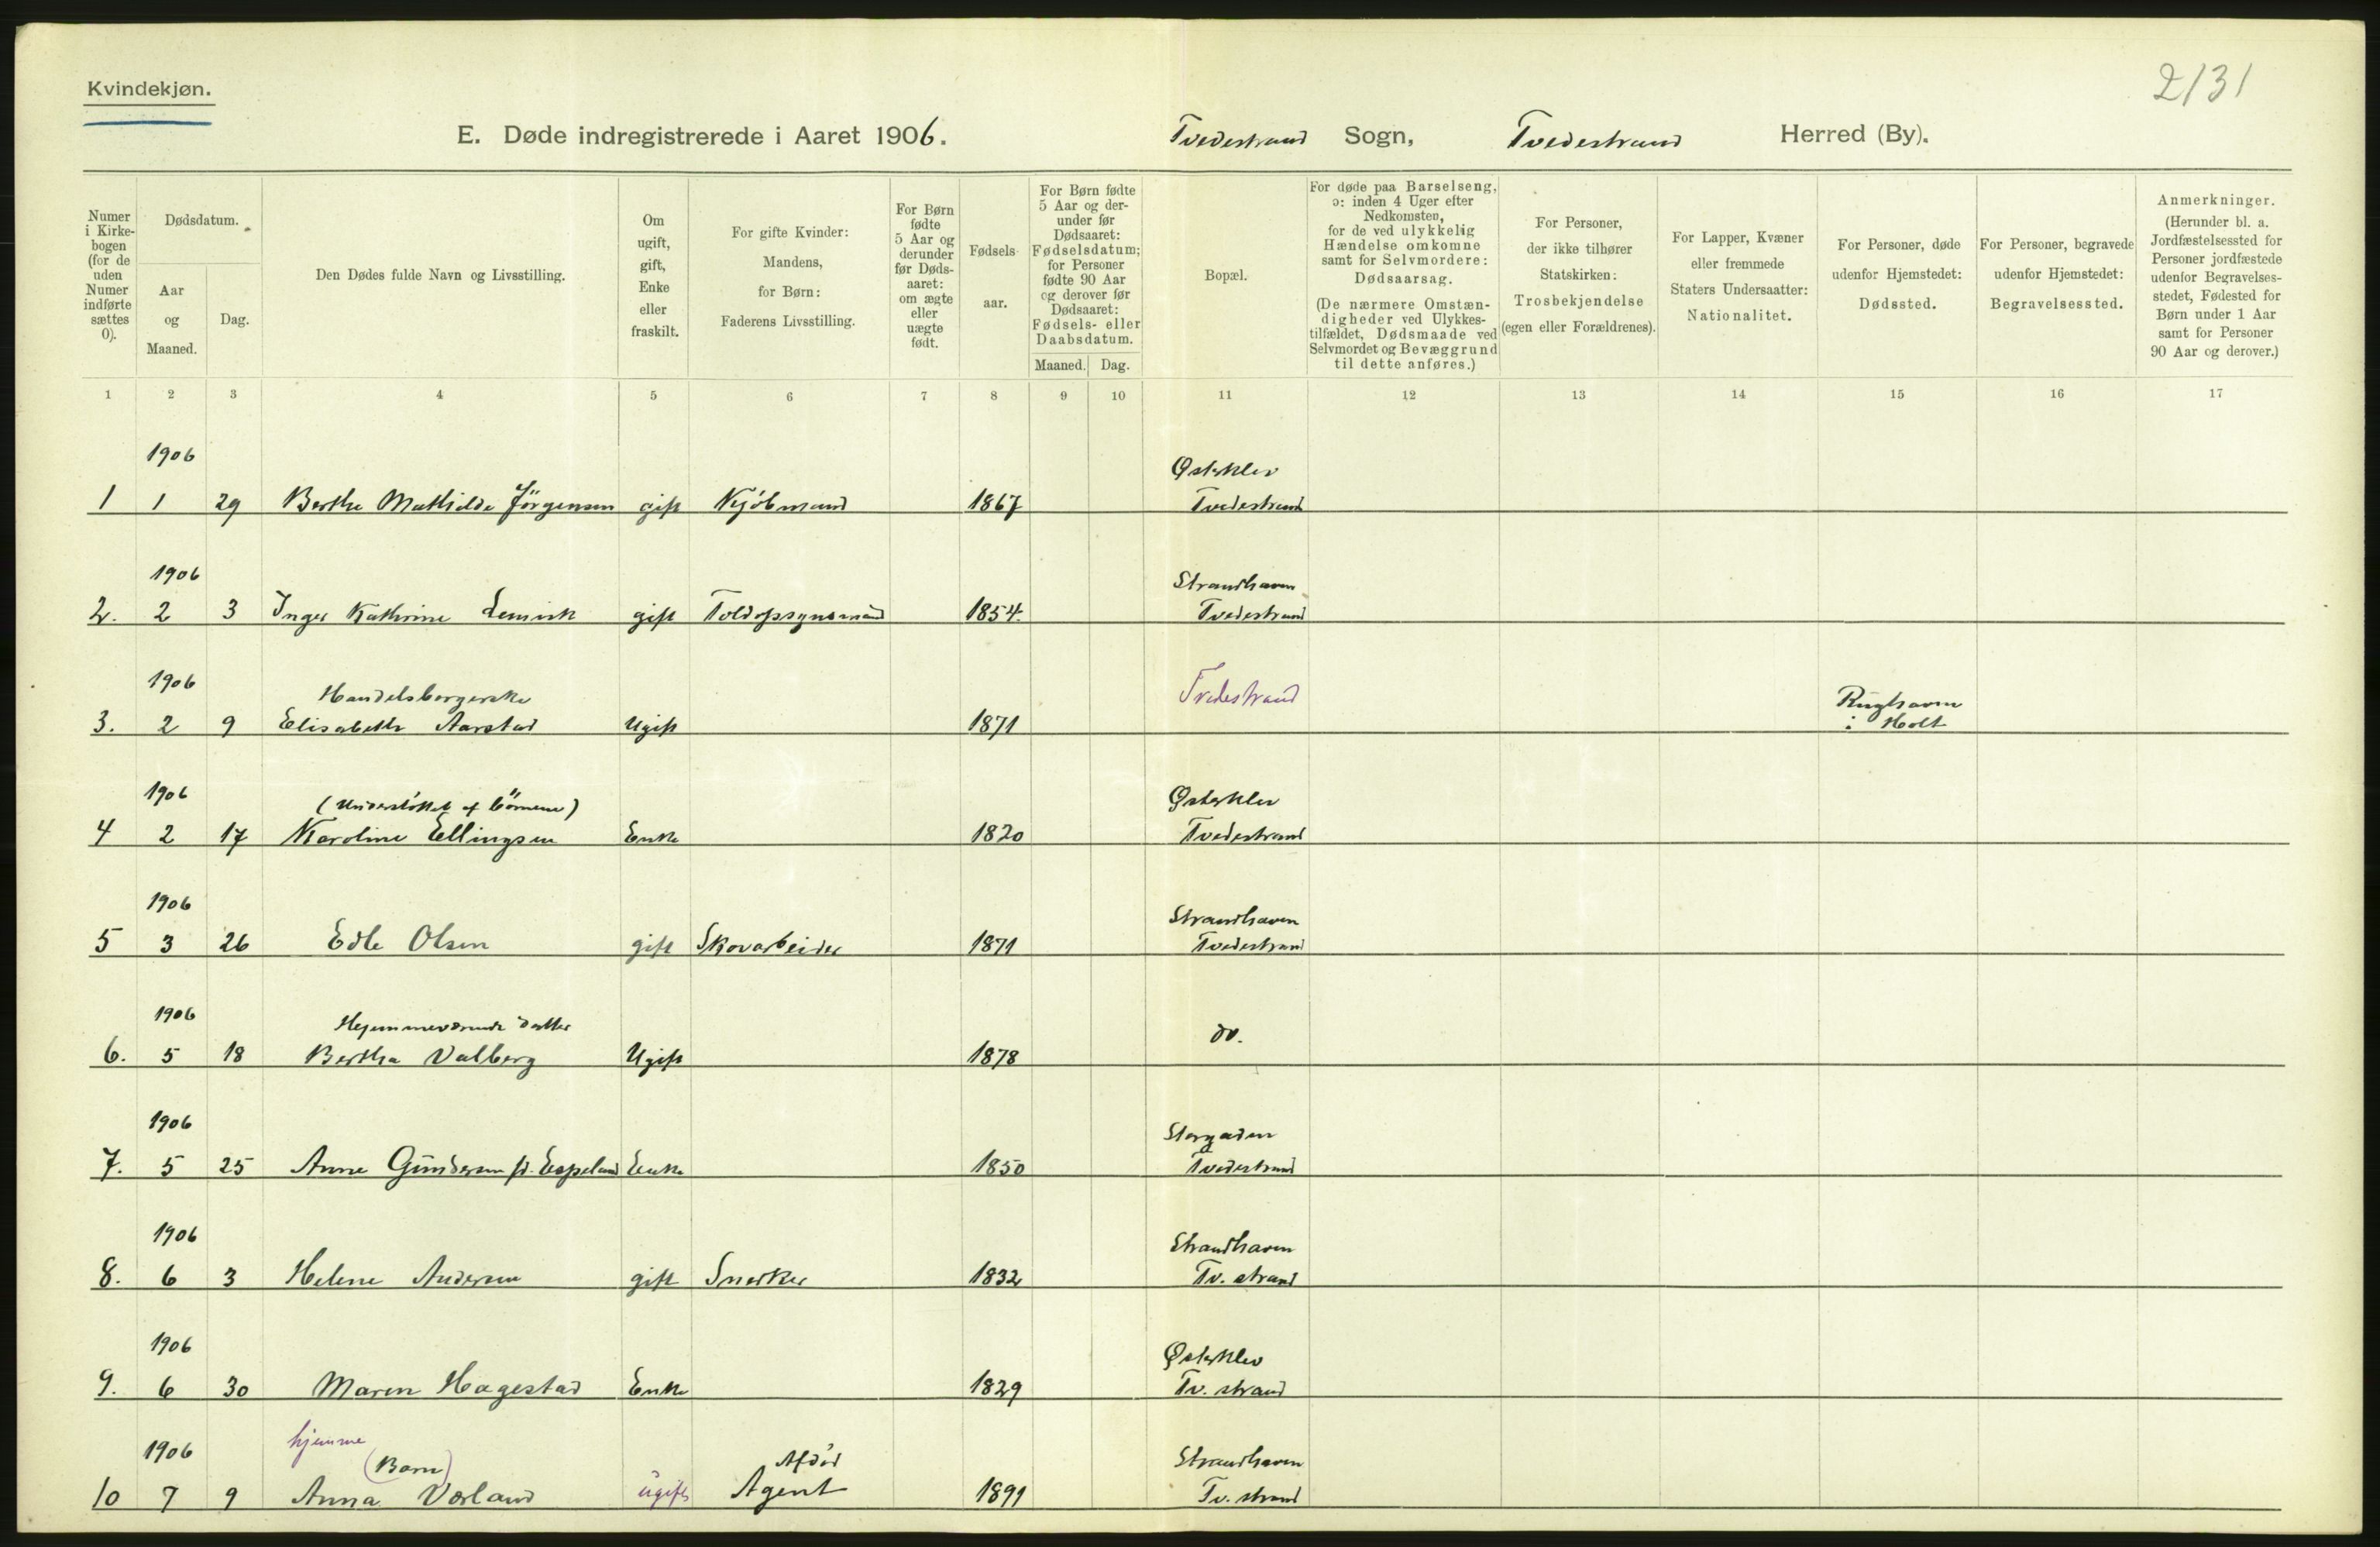 Kvindekjøn.
2131
E. Døde indregistrerede i Aaret 1906. Tvedestrand Sogn, Tvedestrand Herred (By).
Numer i Kirke-bogen (for de uden Numer indførte sættes 0).
Dødsdatum.
Aar og Maaned.
Dag.
Den Dødes fulde Navn og Livsstilling.
Om ugift, gift, Enke eller fraskilt.
For gifte Kvinder: Mandens, for Børn: Faderens Livsstilling.
For Børn fødte 5 Aar og derunder før Døds-aaret: om ægte eller uægte født.
Fødsels-aar.
For Børn fødte 5 Aar og der-under før Dødsaaret: Fødselsdatum; for Personer fødte 90 Aar og derover før Dødsaaret: Fødsels- eller Daabsdatum.
Maaned. Dag.
Bopæl.
For døde paa Barselseng, ɔ: inden 4 Uger efter Nedkomsten, for de ved ulykkelig Hændelse omkomne samt for Selvmordere: Dødsaarsag.
(De nærmere Omstæn-digheder ved Ulykkes-tilfældet, Dødsmaade ved Selvmordet og Bevæggrund til dette anføres.)
For Personer, der ikke tilhører Statskirken: Trosbekjendelse (egen eller Forældrenes).
For Lapper, Kvæner eller fremmede Staters Undersaatter: Nationalitet.
For Personer, døde udenfor Hjemstedet: Dødssted.
For Personer, begravede udenfor Hjemstedet: Begravelsessted.
Anmerkninger. (Herunder bl. a. Jordfæstelsessted for Personer jordfæstede udenfor Begravelses-stedet, Fødested for Børn under 1 Aar samt for Personer 90 Aar og derover.)
1 2 3 4 5 6 7 8 9 10 11 12 13 14 15 16 17
1906 Østerklev
1 1 29 Berthe Mathilde Jörgensen gift Kjöbmand 1867 Tvedestrand
1906 Strandhaven
2. 2 3 Inger Kathrine gift Toldopsynsmand 1854. Tvedestrand
1906 Handelsborgerske Tvedestrand
3. 2 9 Elisabeth Aarstad Ugift 1871 i Holt
1906 (Understöttet af börnene) Østerklev
4 2 17 Karoline Ellingsen Enke 1820 Tvedestrand
1906 Strandhaven
5 3 26 Edle Olsen gift Skovarbeider 1871 Tvedestrand
1906 Hjemmeværende datter do.
6. 5 18 Bertha Valberg Ugift 1878
1906 Storgaden
7. 5 25 Anne Gundersen fd. Espeland Enke 1850 Tvedestrand
1906 Strandhaven
8. 6 3 Helene Andersen gift Snerker 1832 Tv. strand
1906 Østerklev
9. 6 30 Maren Hagestad Enke 1829 Tv. strand
hjemme
1906 (Barn) Afdöd Strandhaven
10 7 9 Anna Værland ugift Agent 1891 Tv. strand